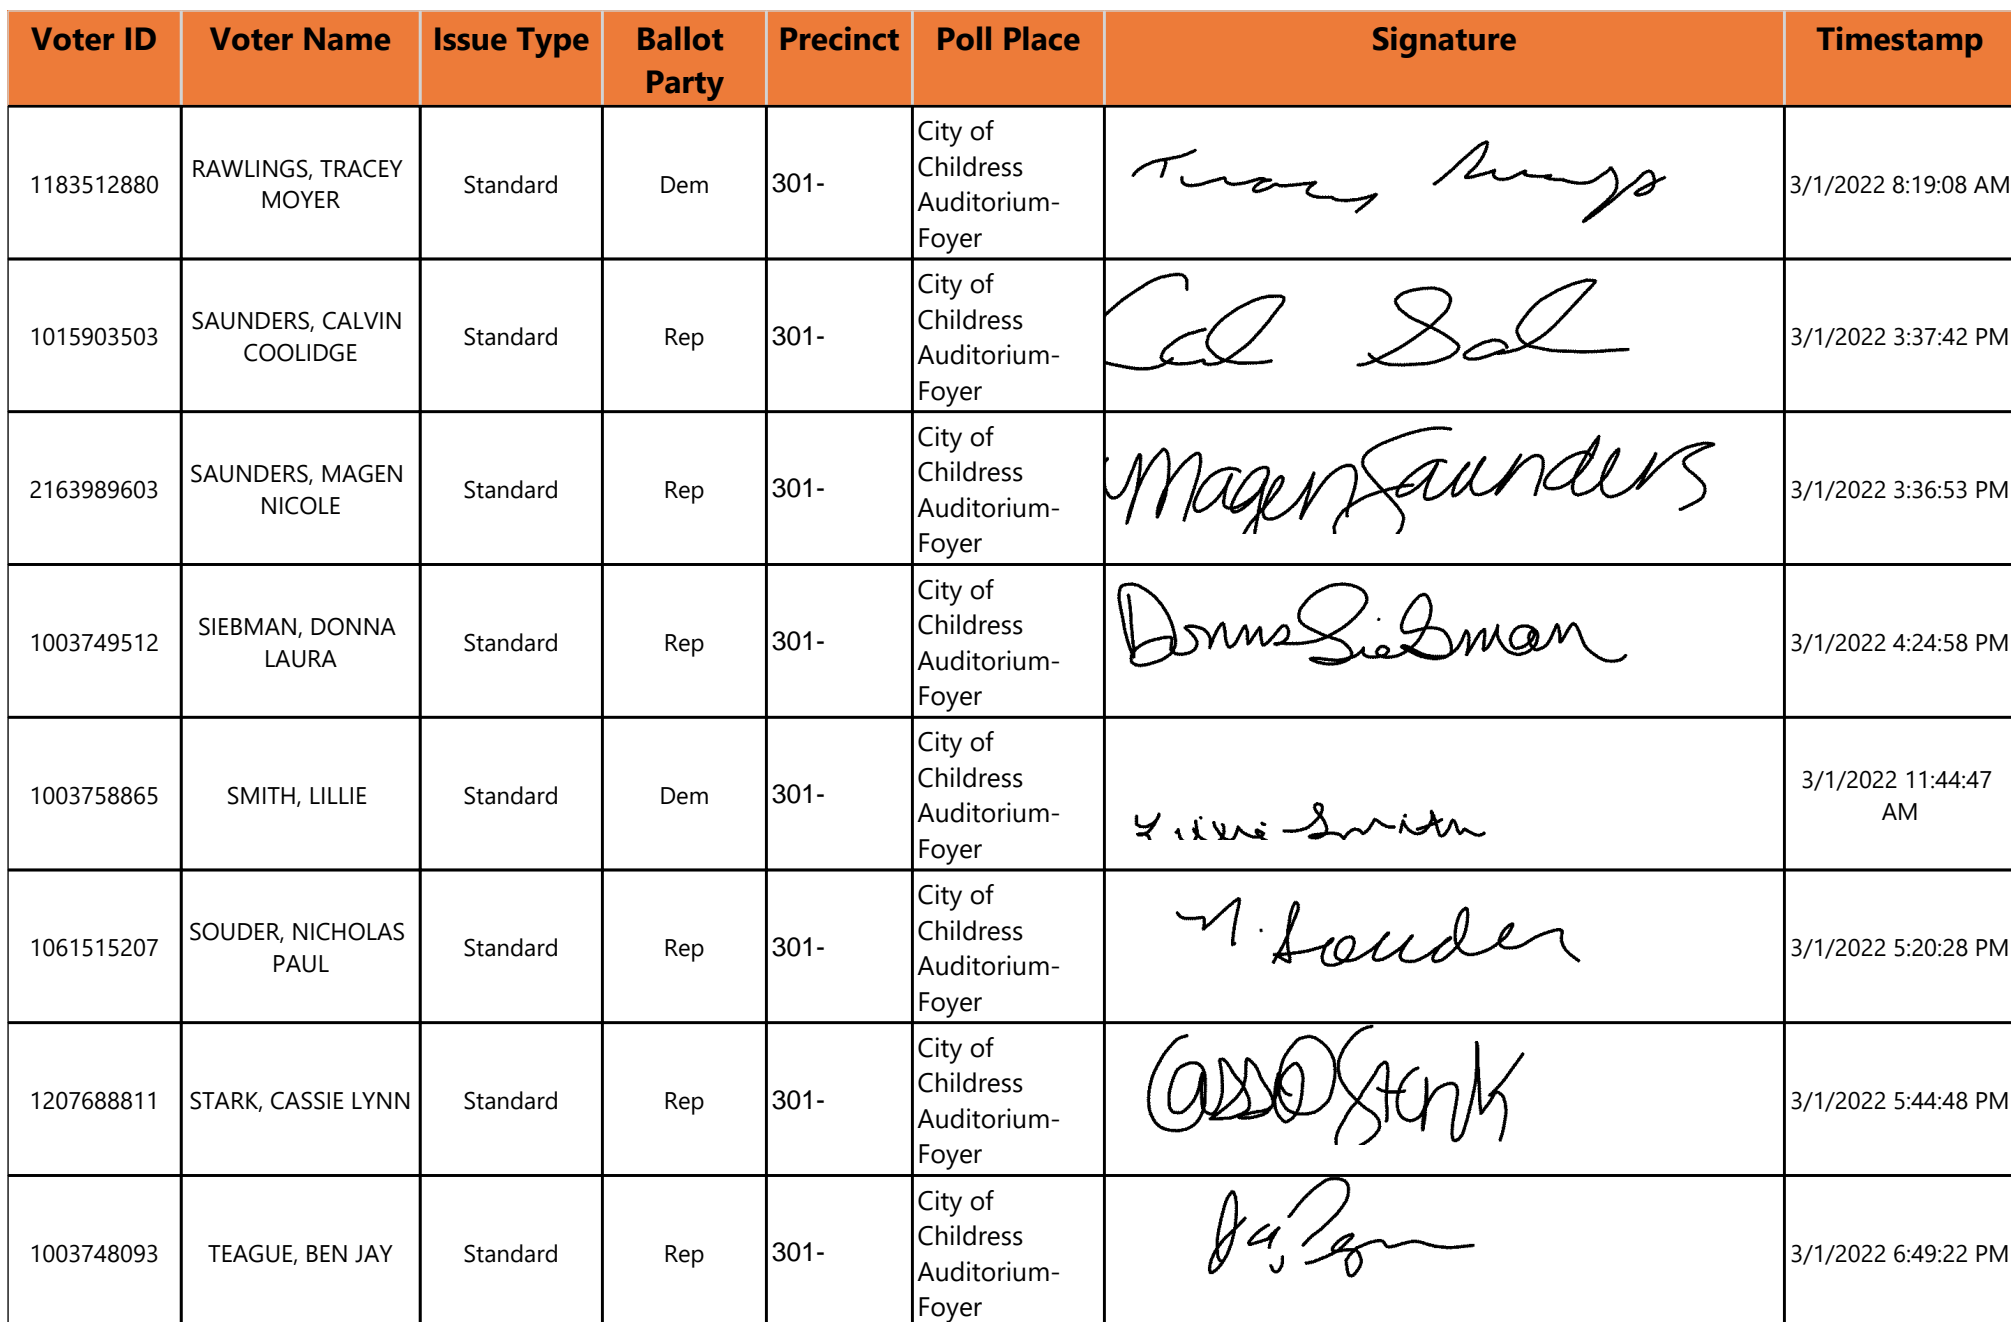 Voter ID Voter Name Issue Type Ballot Party Precinct Poll Place Signature Timestamp
1183512880 RAWLINGS, TRACEY MOYER Standard Dem 301- City of Childress Auditorium-Foyer 3/1/2022 8:19:08 AM
1015903503 SAUNDERS, CALVIN COOLIDGE Standard Rep 301- City of Childress Auditorium-Foyer 3/1/2022 3:37:42 PM
2163989603 SAUNDERS, MAGEN NICOLE Standard Rep 301- City of Childress Auditorium-Foyer Magen Saunders 3/1/2022 3:36:53 PM
1003749512 SIEBMAN, DONNA LAURA Standard Rep 301- City of Childress Auditorium-Foyer Donna Siebman 3/1/2022 4:24:58 PM
1003758865 SMITH, LILLIE Standard Dem 301- City of Childress Auditorium-Foyer Lillie Smith 3/1/2022 11:44:47 AM
1061515207 SOUDER, NICHOLAS PAUL Standard Rep 301- City of Childress Auditorium-Foyer N. Souder 3/1/2022 5:20:28 PM
1207688811 STARK, CASSIE LYNN Standard Rep 301- City of Childress Auditorium-Foyer Stark 3/1/2022 5:44:48 PM
1003748093 TEAGUE, BEN JAY Standard Rep 301- City of Childress Auditorium-Foyer 3/1/2022 6:49:22 PM